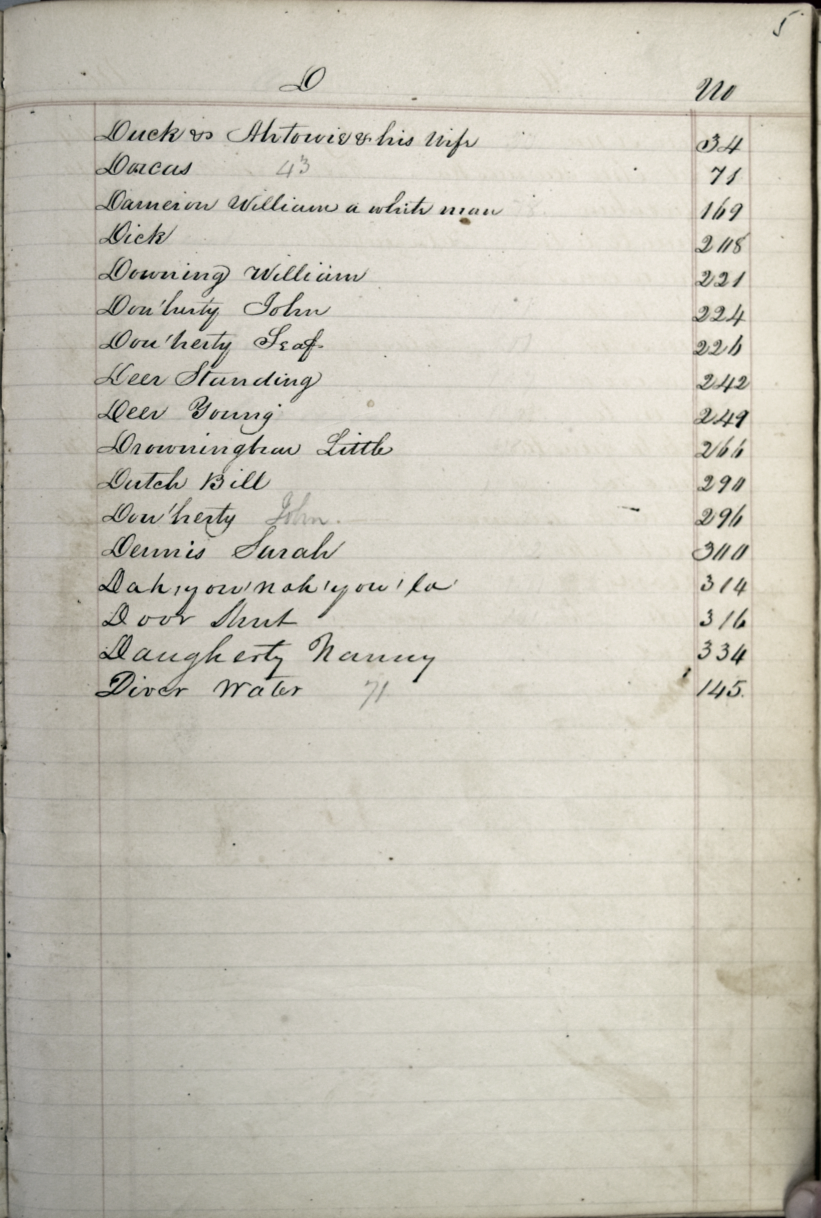 5
D No
Duck vs Ahtowie & his Wife 34
Dorcas 43 71
Dameron William a white man 169
Dick 208
Downing William 221
Dou'herty John 224
Dou'herty Seaf 226
Deer Standing 242
Deer Young 249
Drowningbear Little 266
Dutch Bill 290
Dou'herty John. 296
Dennis Sarah 300
Dah'you'nah'you'la' 314
Door Shut 316
Daugherty Nanny 334
Diver Water 71 145.